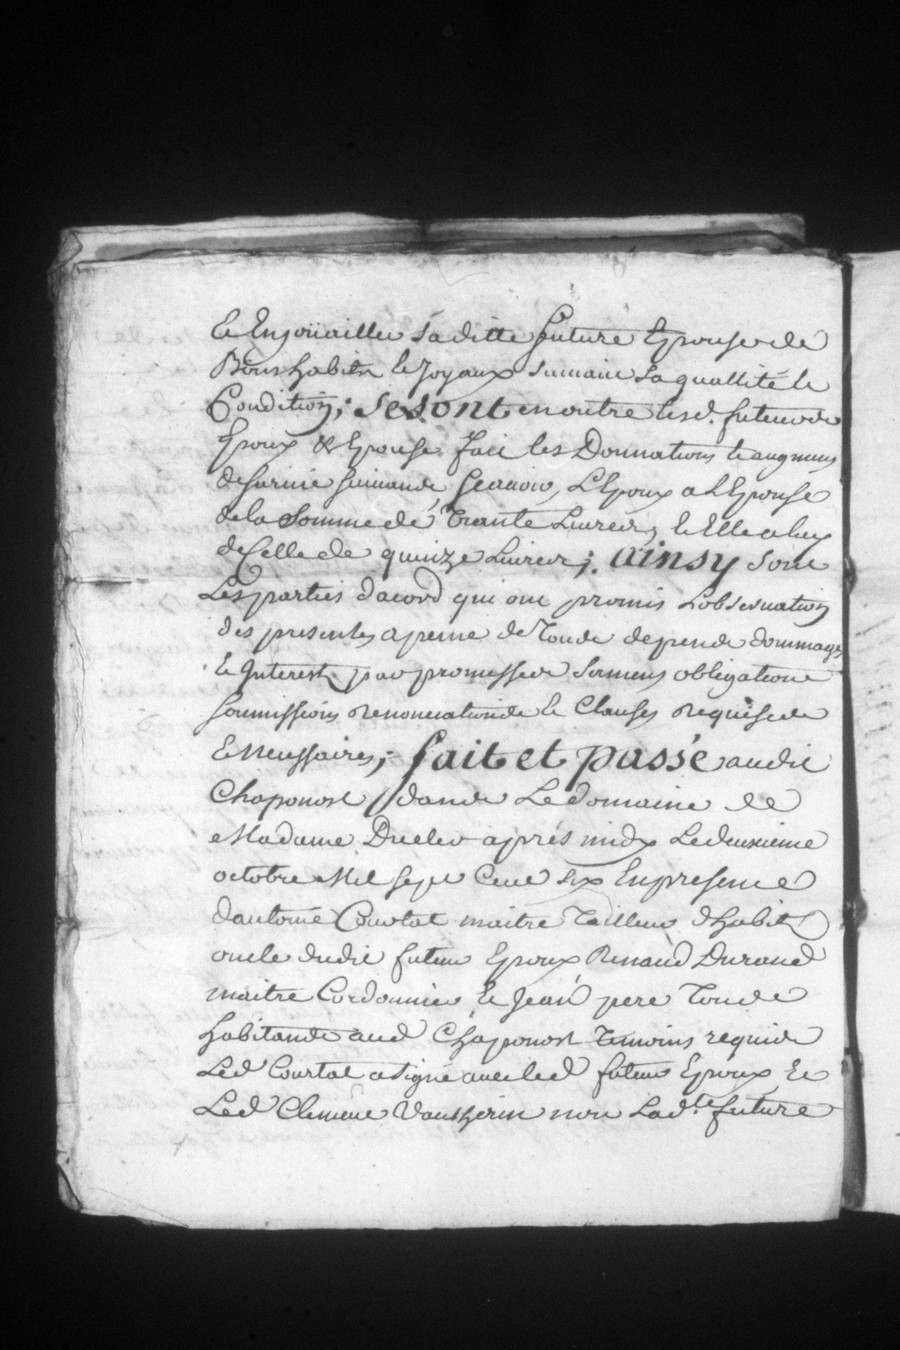 Et Enjoüailler sa ditte future Epouse de
Bons habits et Joyaux suivant sa quallité et
Condition; se sont en outre lesd. futurs
Epoux & Epouse fait les Donnations et augmens
de survie suivants, scavoir, L'Epoux a L'Epouse
de la somme de trante Livres, et Elle a luy
de Celle de quinze Livres; ainsy sont
Les parties d'acord qui ont promis L'observation
des presentes a peine de tous depends dommages
et Interests par promesses serment obligations
soumissions renonciations et Clauses requises
& Necessaires; fait et passé audit
Chaponost dans Le domaine de
Madame Duclos après midy Le deuxieme
octobre Mil sept Cent six En presence
d'antoine Courtat maitre tailleur d'habits
oncle dudit futur Epoux Renaud Durand
maitre Cordonnier et Jean pere tous
habitants aud Chaponost temoins requis
Led Courtat a signé avec led futur Epoux Et
Led Clement Vautherin non Lad.te future